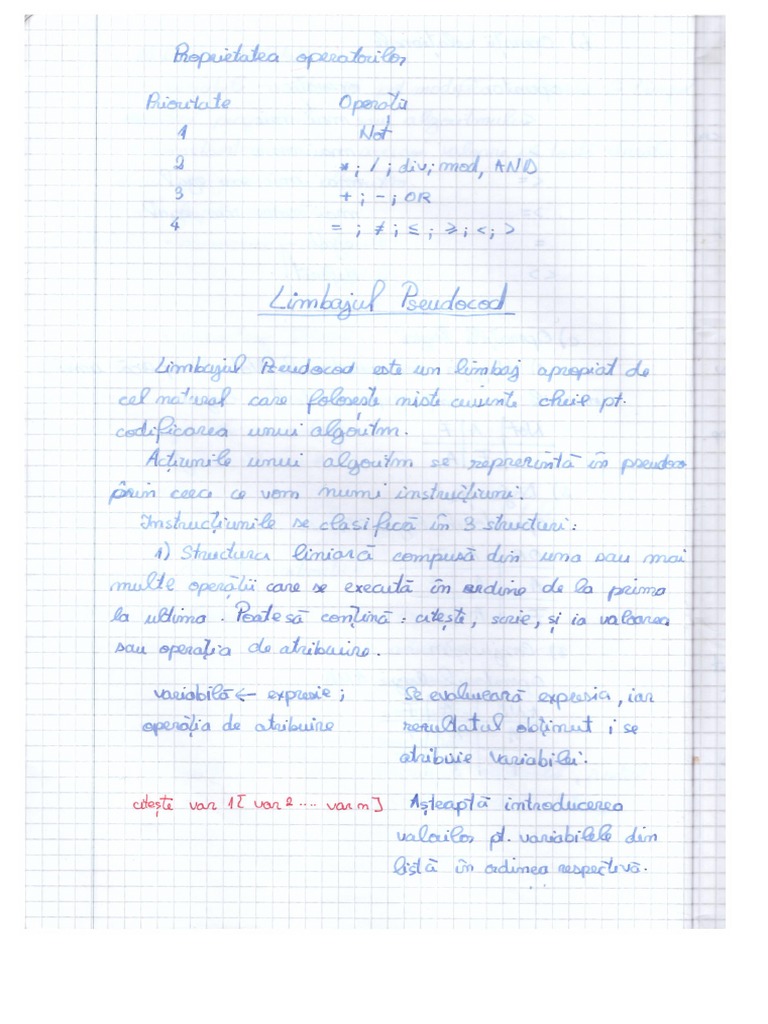 Proprietatea operatorilor
Prioritate Operatii
1 Not
2 * ; / ; div; mod, AND
3 + ; - ; OR
4 = ; ≠ ; ≤ ; ≥ ; < ; >
Limbajul Pseudocod
Limbajul Pseudocod este un limbaj apropiat de
cel natural care folosește niste cuvinte cheie pt.
codificarea unui algoritm.
Acțiunile unui algoritm se reprezintă în pseudoco
prin ceea ce vom numi instrucțiuni.
Instrucțiunile se clasifică în 3 structuri:
1) Structura liniară compusă din una sau mai
multe operații care se execută în ordine de la prima
la ultima. Poate să conțină: citește, scrie, și ia valoarea
sau operația de atribuire.
variabilă ← expresie ; Se evaluează expresia, iar
operația de atribuire rezultatul obținut i se
atribuie variabilei.
citește var 1[ var 2 .... var n] Așteaptă introducerea
valorilor pt. variabilele din
listă în ordinea respectivă.